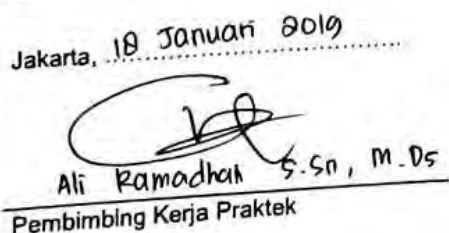 Jakarta, 18 Januari 2019
Ali Ramadhan S.Sn, M.Ds
Pembimbing Kerja Praktek